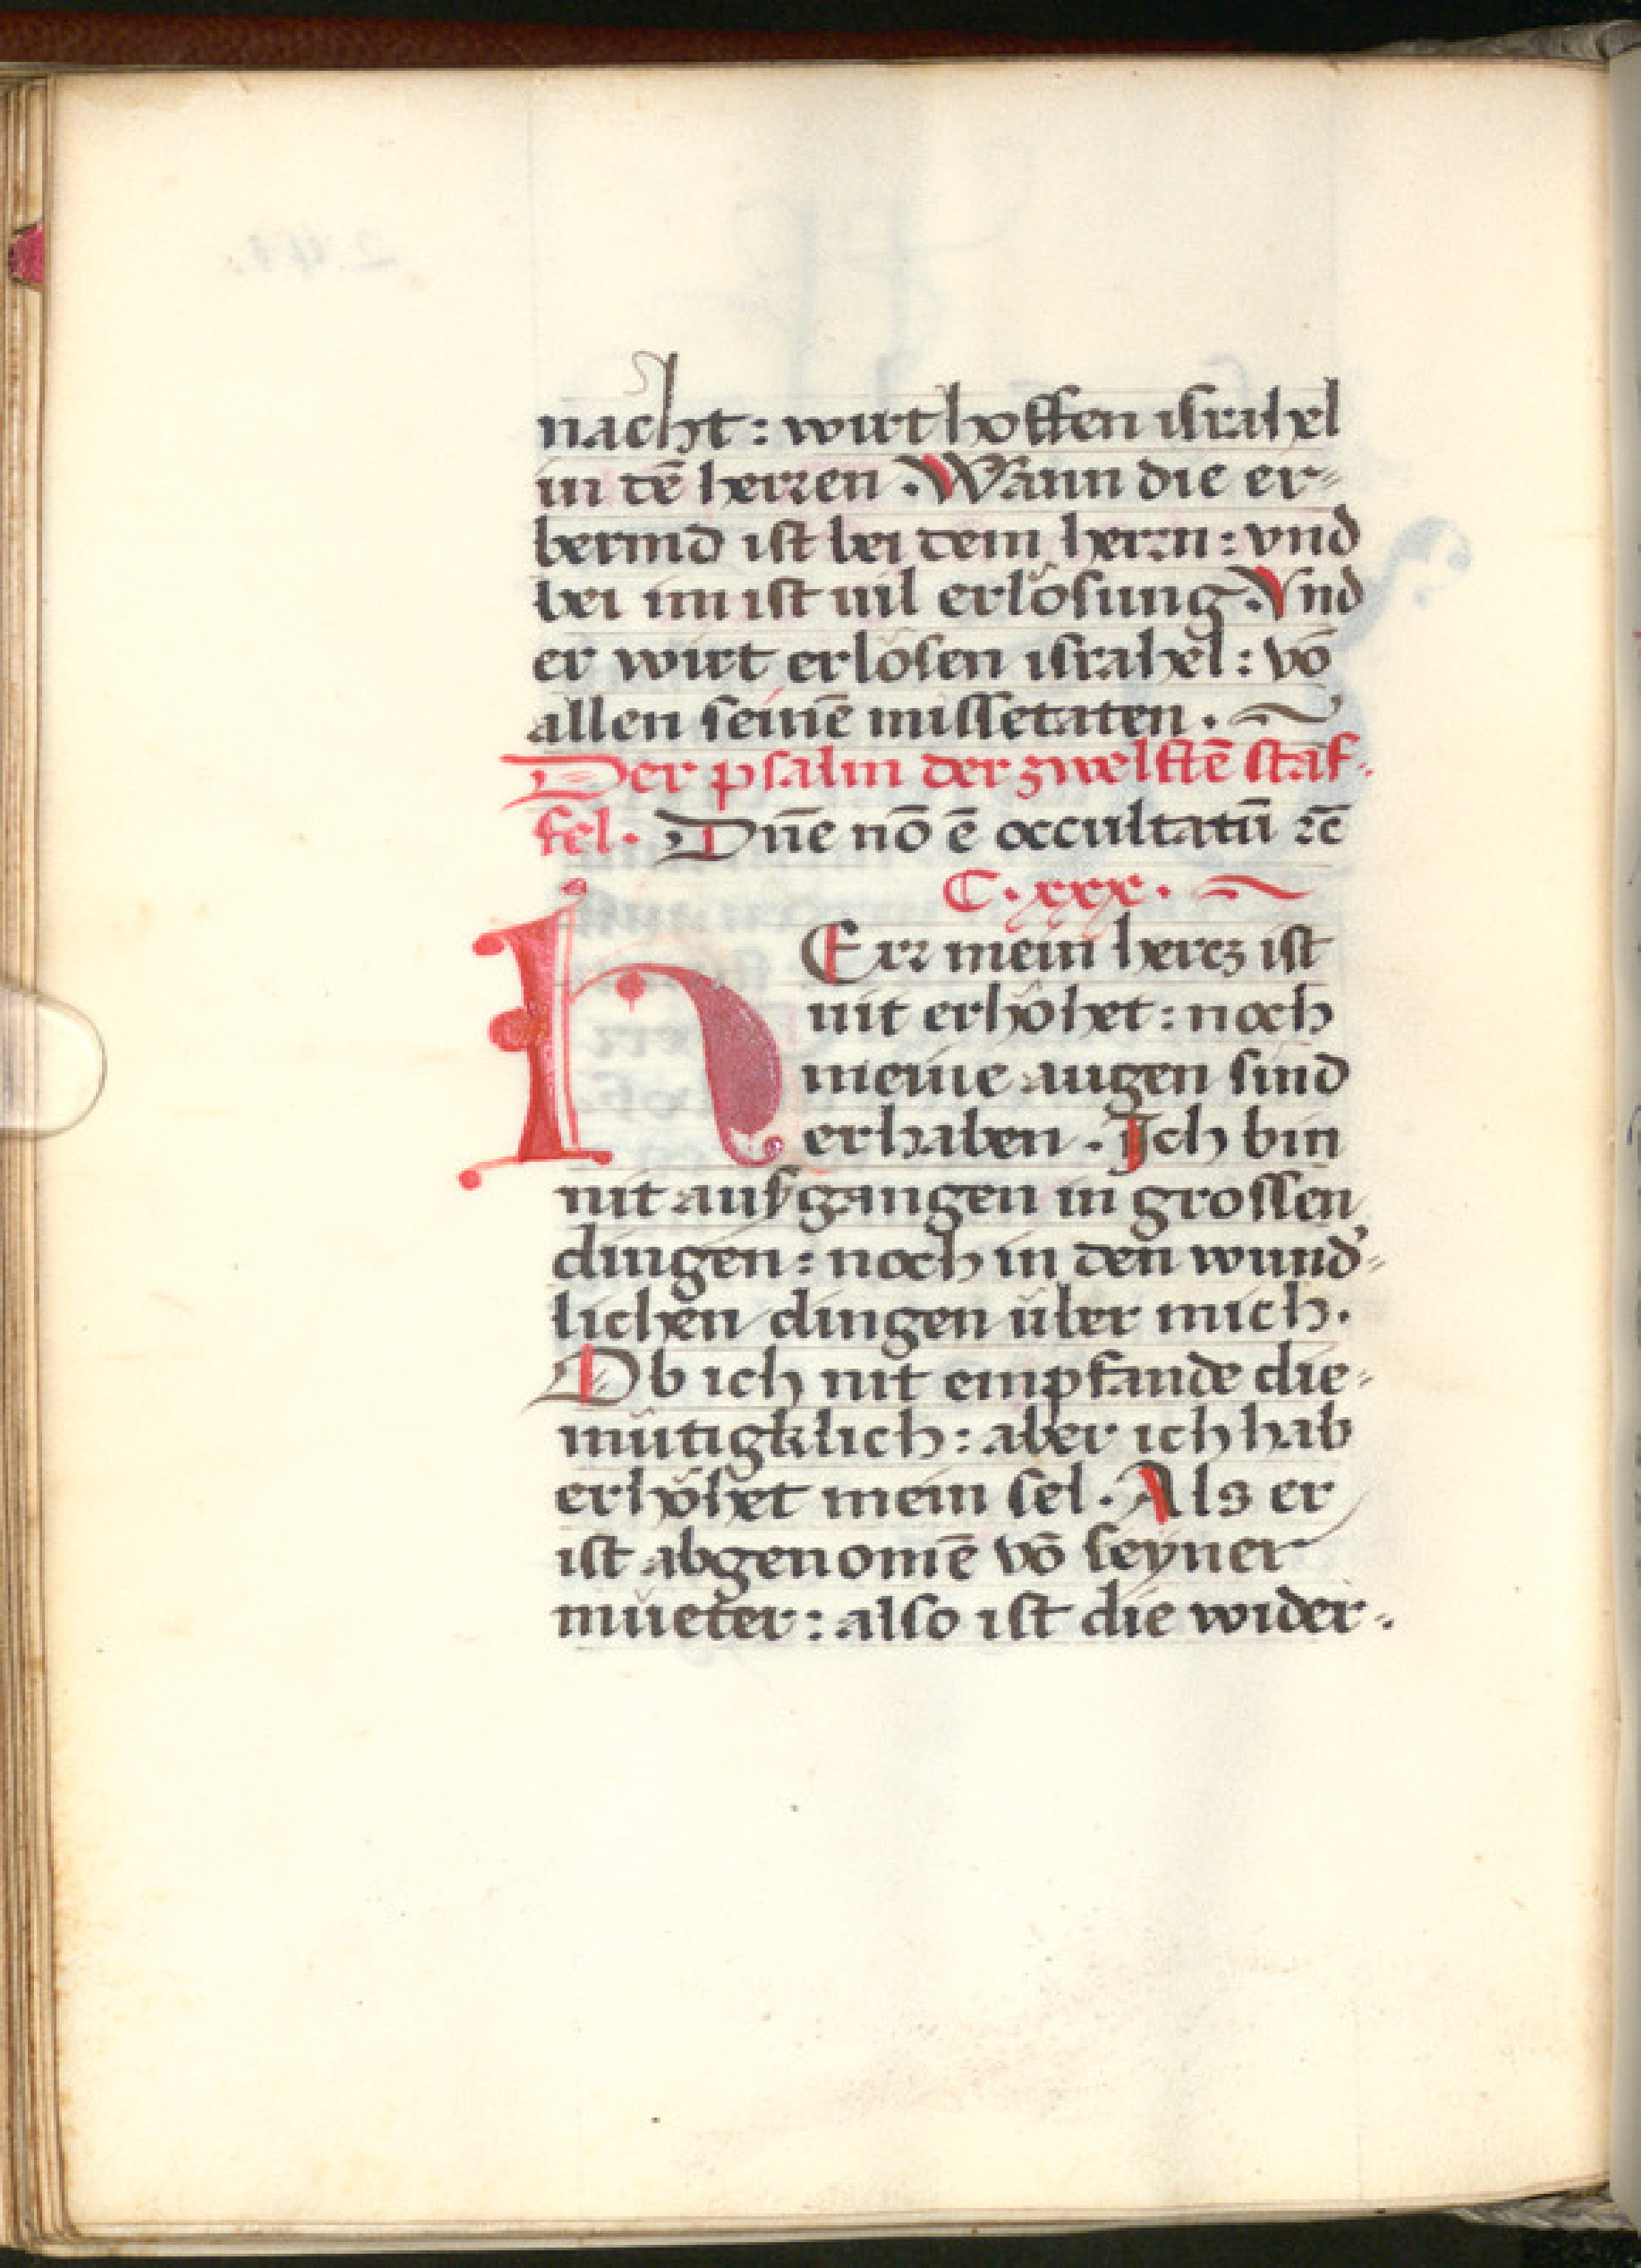 nacht: wirt hoffen israhel
in dē herren. Wann die er-
bermd ist bei dem herrn: vnd
bei im ist uil erlösung. Vnd
er wirt erlösen israhel: vō
allen seinē missetaten.
Der psalm der zwelftē staf-
fel. Dn̄e nō ē occultatū ⁊c̄
C.xxx.
HErr mein hercz ist
nit erhöhet: noch
meine augen sind
erhaben. Ich bin
nit ausgangen in grossen
dingen: noch in den wund’-
lichen dingen über mich.
Ob ich nit empfande die-
mütigklich: aber ich hab
erhöhet mein sel. Als er
ist abgenomē vō seyner
müeter: also ist die wider-